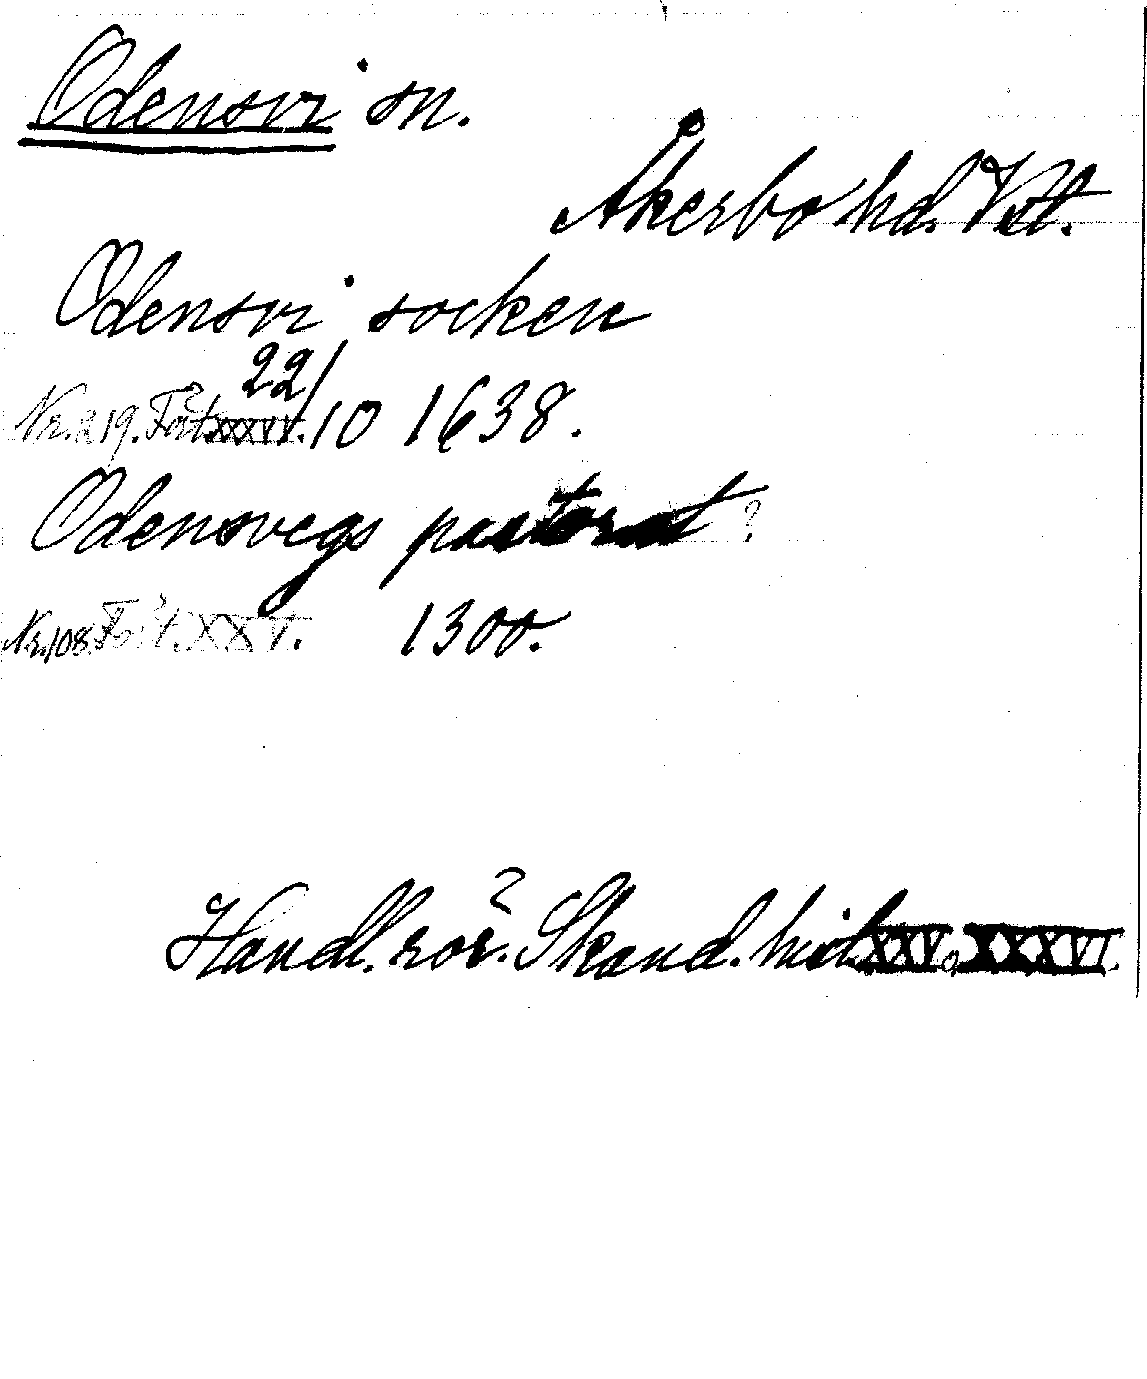 Odensvi sn.
Åkerbo hd. Vstl.
Odensvi socken
22/10 1638.
Nr. 219. Följ. XXIV.
Odensvegs pastorat?
Nr. 108. XXV. 1300.
Handl. rör. Skand. hist. XXV. o. XXXVI.